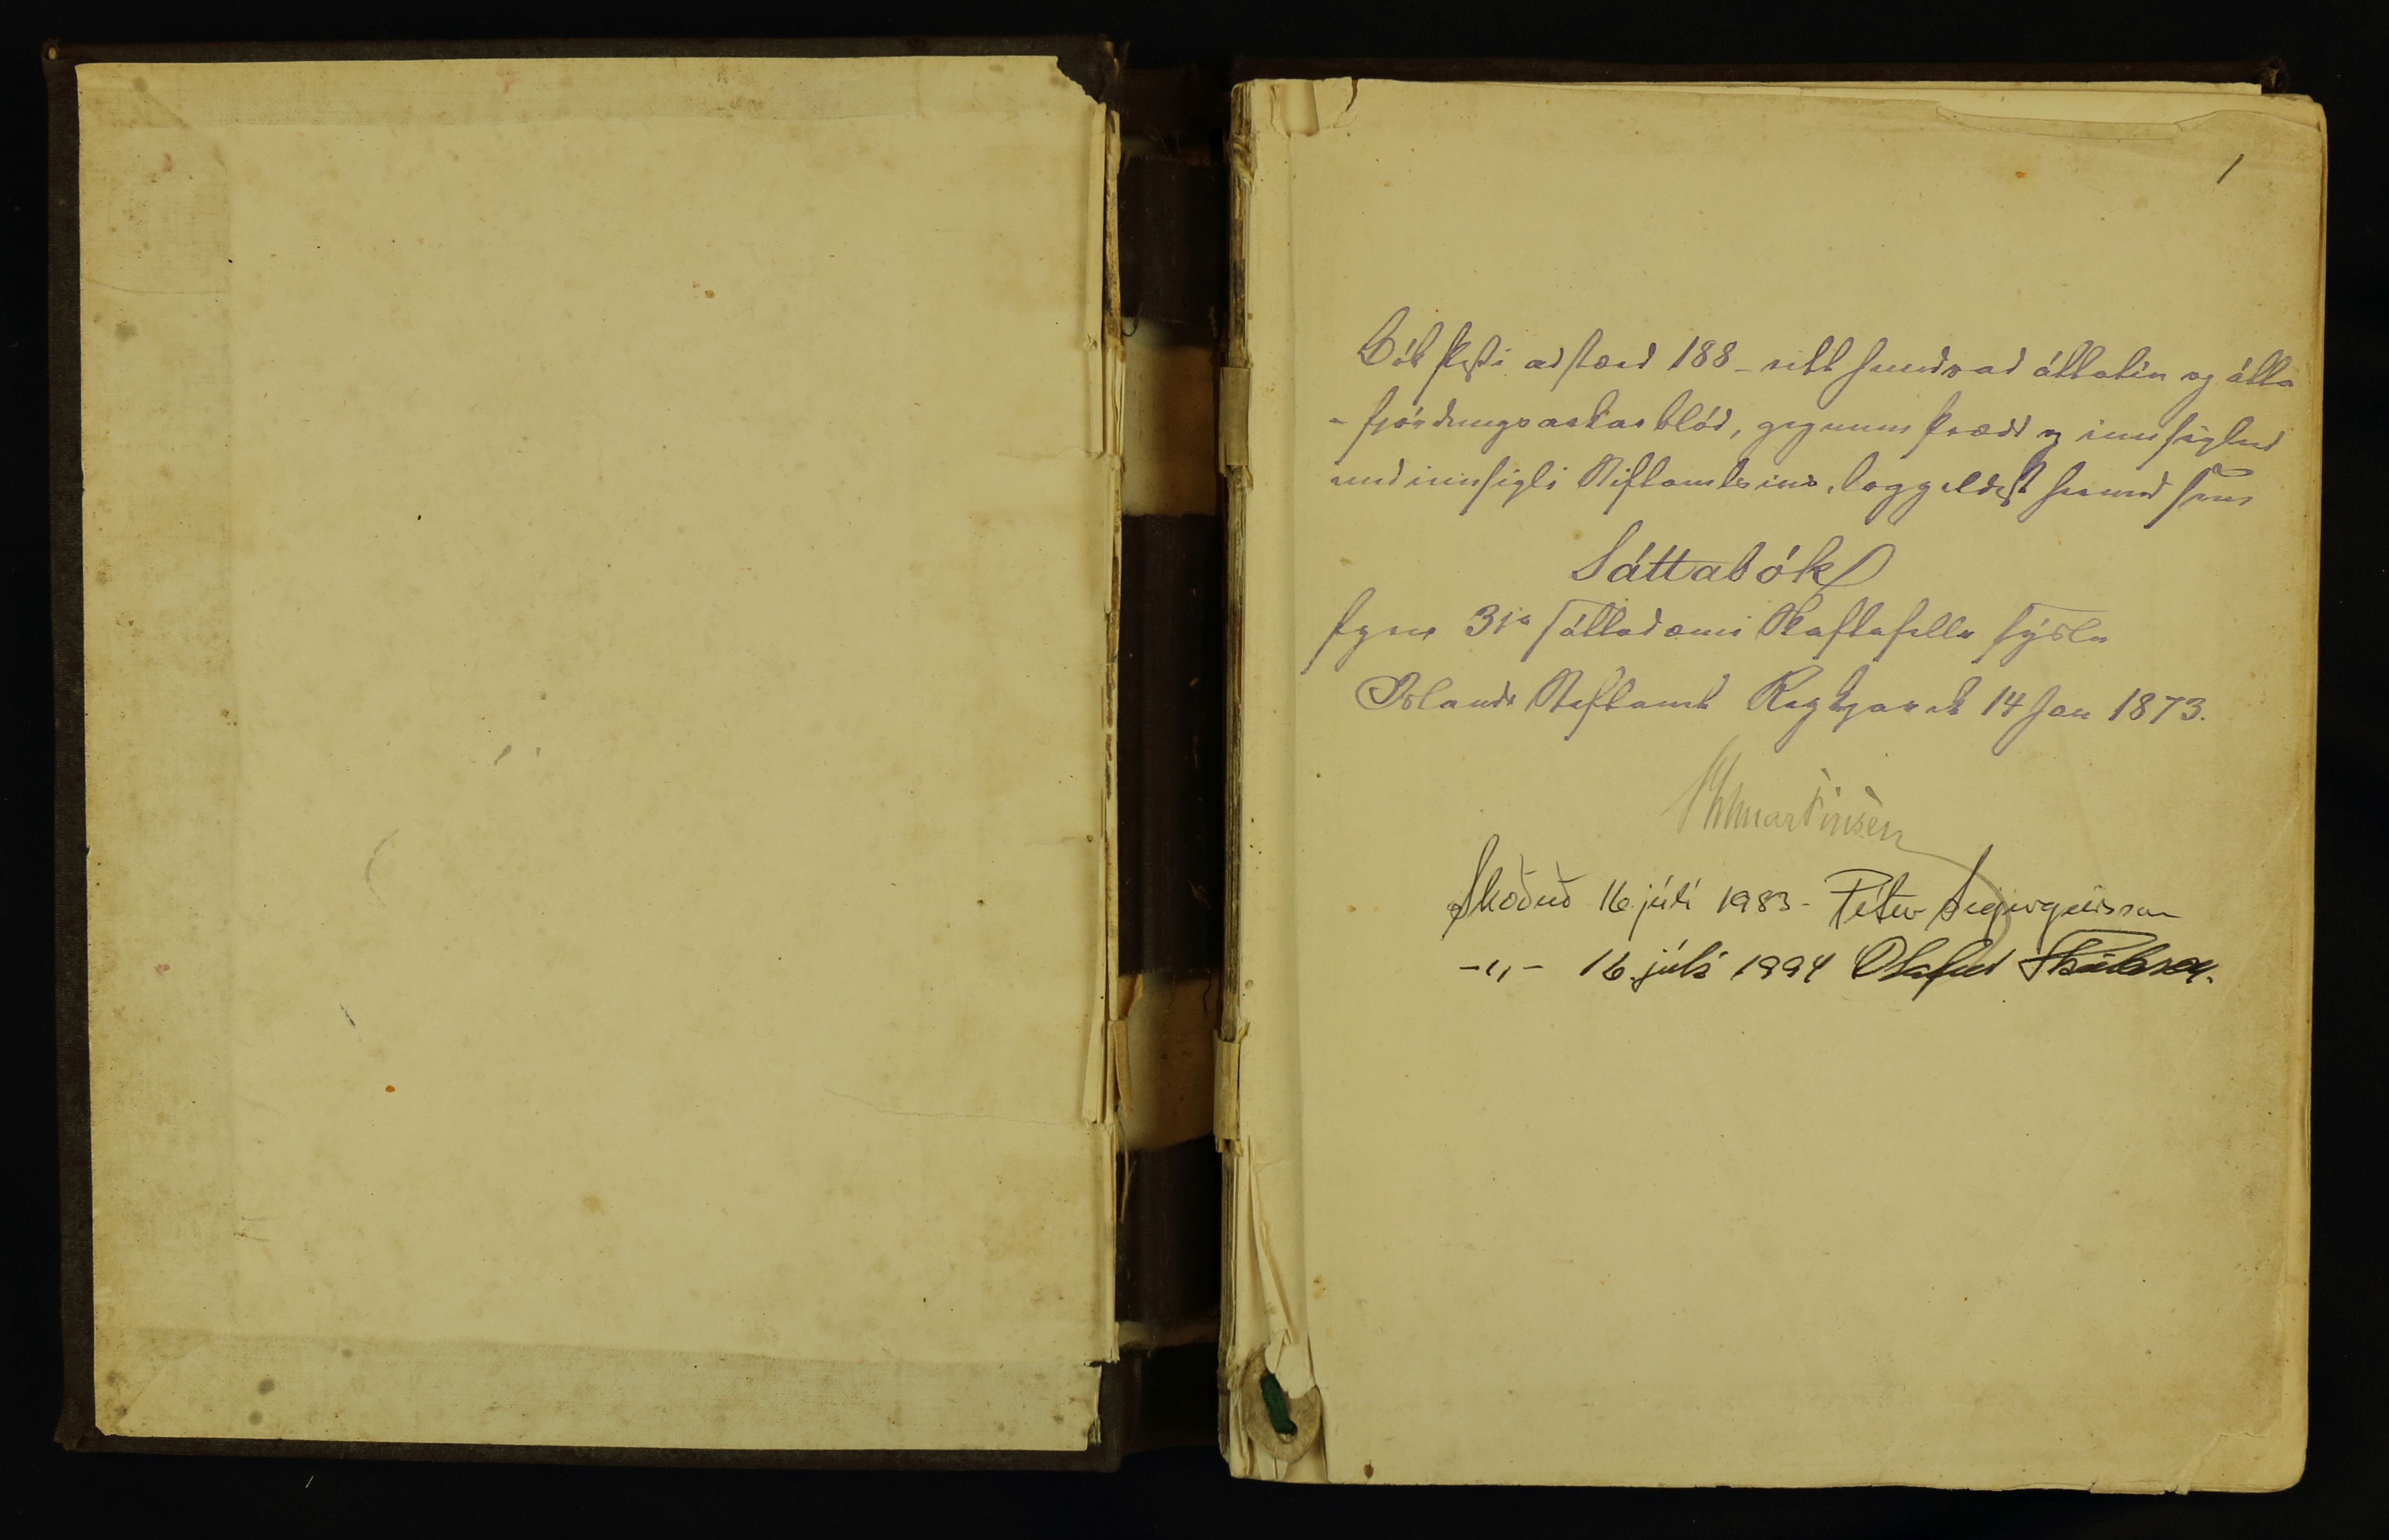 1
Bók þessi ad stærd 188 - eitt hundrad áttatíu og átta
- fjórdungsarkar blöd, gegnum þrædd og innsiglud
med innsigli Stiftamtsins, löggeldist hermed sem
Sáttabók
fyrir 31ta sáttadæmi Skaftafells sýslu
Islands Stiftamt Reykjavik 14 Jan 1873.
Hilmar Finsen
Skoðuð 16. júlí 1983 - Pétur Sigurgeirsson
-"- 16. júlí 1994 Ólafur Skúlason.